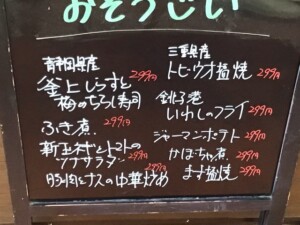 おそうじい
静岡県産
釜上しらすと 299円
梅のちらし寿司
ふき煮 299円
新玉ネギとトマトの
ツナサラダ 299円
豚肉とナスの中華炒め
三重県産
トビウオ塩焼 299円
銚子港
いわしのフライ 299円
ジャーマンポテト 299円
かぼちゃ煮 299円
ます塩焼 299円